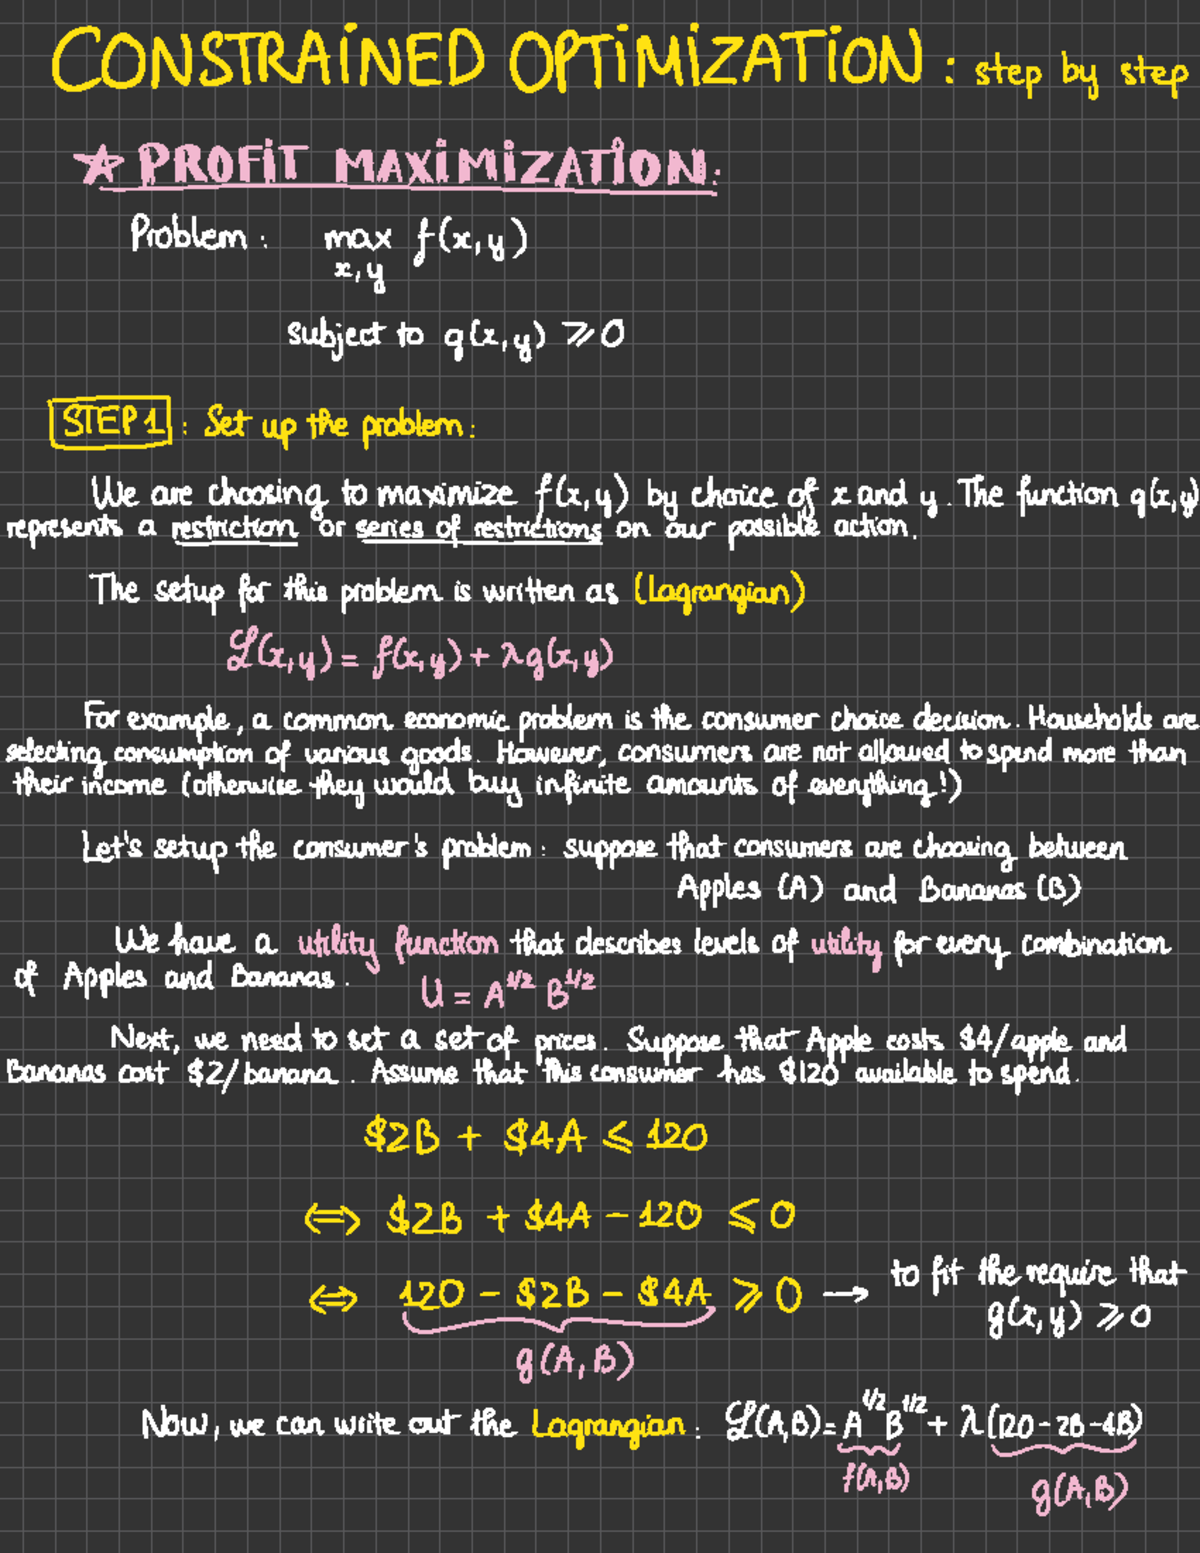 CONSTRAINED OPTIMIZATION : step by step
☆ PROFIT MAXIMIZATION:
Problem : max f(x,y)
x,y
subject to g(x,y) ⩾ 0
STEP 1 : Set up the problem :
We are choosing to maximize f(x,y) by choice of x and y. The function g(x,y)
represents a restriction or series of restrictions on our possible action.
The setup for this problem is written as (Lagrangian)
ℒ(x,y) = f(x,y) + λg(x,y)
For example, a common economic problem is the consumer choice decision. Households are
selecting consumption of various goods. However, consumers are not allowed to spend more than
their income (otherwise they would buy infinite amounts of everything!)
Let's setup the consumer's problem : suppose that consumers are choosing between
Apples (A) and Bananas (B)
We have a utility function that describes levels of utility for every combination
of Apples and Bananas.
U = A^1/2 B^1/2
Next, we need to set a set of prices. Suppose that Apple costs $4/apple and
Bananas cost $2/banana. Assume that this consumer has $120 available to spend.
$2B + $4A ⩽ 120
⇔ $2B + $4A - 120 ⩽ 0
⇔ 120 - $2B - $4A ⩾ 0 → to fit the require that
g(x,y) ⩾ 0
g(A,B)
Now, we can write out the Lagrangian : ℒ(A,B) = A^1/2 B^1/2 + λ(120 - 2B - 4B)
f(A,B) g(A,B)